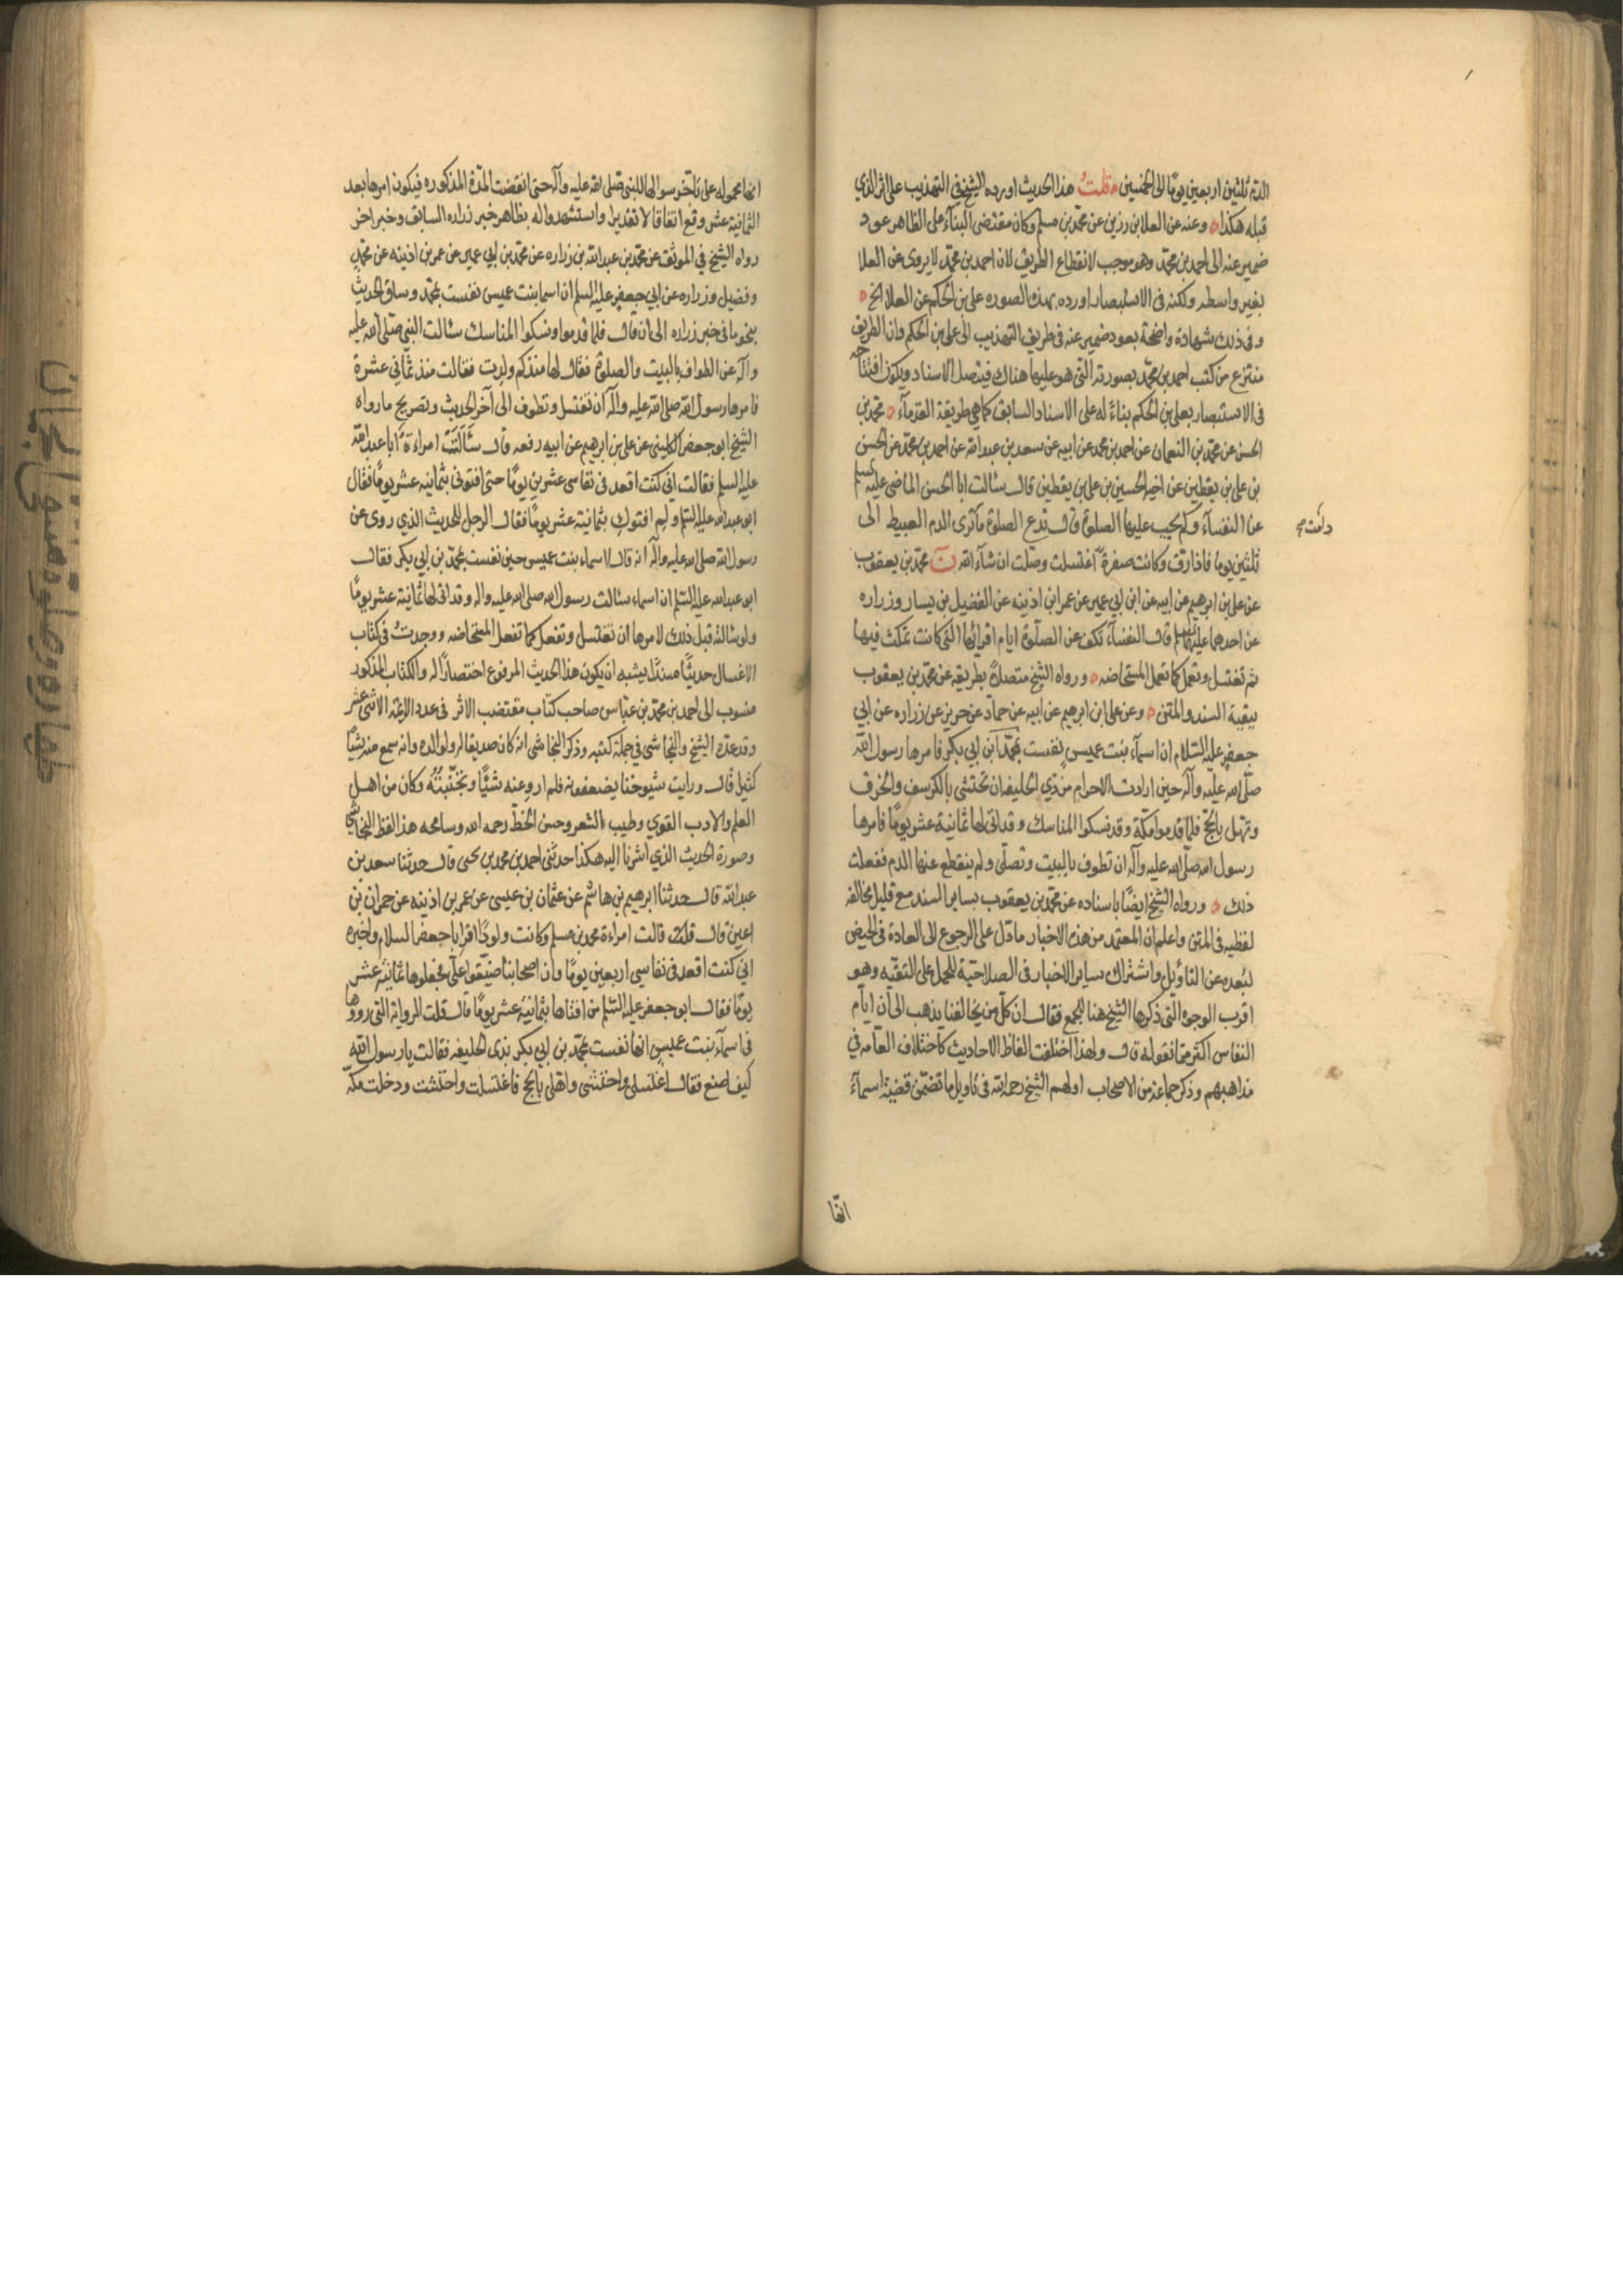 الدم ثلثين اربعين يوما الى الخمسين قلت هذا الحديث اورده الشيخ في التهذيب على اثر الذي
قبله هكذا وعنه عن العلا بن رزين عن محمد بن مسلم وكان مقتضى البناء على الظاهر عود
ضمير عنه الى احمد بن محمد وهو موجب لانقطاع الطريق لان احمد بن محمد لا يروى عن العلا
بغير واسطه ولكنه فى الاستبصار اورده بهذه الصوره على بن الحكم عن العلا الخ
وفى ذلك شهادة واضحة بعود ضمير عنه فى طريق التهذيب الى على بن الحكم وان الطريق
منتزع من كتب احمد بن محمد بصورته التى هو عليها هناك فيتصل الاسناد ويكون افتتاحه
فى الاستبصار بعلى بن الحكم بناءً له على الاسناد السابق كما هى طريقة القدمآء محمد بن
الحسن عن محمد بن النعمان عن احمد بن محمد عن ابيه عن سعد بن عبد الله عن احمد بن محمد عن الحسن
بن على بن يقطين عن اخيه الحسين بن على بن يقطين قال سئالت ابا الحسن الماضى عليه السلم
عن النفسآء وكم يجب عليها الصلوة قال تدع الصلوة ما ترى الدم العبيط الى
دامت
ثلثين يوما فاذا رق وكانت صفرة اغتسلت وصلت ان شآء الله ن محمد بن يعقوب
عن على بن ابرهيم عن ابيه عن ابن ابي عمير عن عمر ابن اذينه عن الفضيل بن يسار وزراره
عن احدهما عليهما السلم قال النفسآء تكف عن الصلوة ايام اقرائها التى كانت تمكث فيها
ثم تغتسل وتعمل كما تعمل المستحاضه ورواه الشيخ متصلاً بطريقه عن محمد بن يعقوب
ببقية السند والمتن وعن على ابن ابرهيم عن ابيه عن حماد عن حريز عن زراره عن ابي
جعفر عليه السلام ان اسمآء بنت عميس نفست بمحمد ابن ابي بكر فامرها رسول الله
صلى الله عليه وآله حين ارادت الاحرام من ذي الحليفه ان تحتشى بالكرسف والخرق
وتهل بالحج فلما قدموا مكة وقد نسكوا المناسك وقد اتى لها ثمانية عشر يومًا فامرها
رسول الله صلى الله عليه وآله ان تطوف بالبيت وتصلى ولم ينقطع عنها الدم ففعلت
ذلك ورواه الشيخ ايضًا باسناده عن محمد بن يعقوب بساير السند مع قليل مخالفه
لفظيه فى المتن واعلم ان المعتمد من هذه الاخبار ما دل على الرجوع الى العادة فى الحيض
لبُعده عن التاويل واشتراك ساير الاخبار فى الصلاحيّة للحمل على التقيّه وهو
اقرب الوجوه التى ذكرها الشيخ هنا للجمع فقال ان كل من يخالفنا يذهب الى ان ايام
النفاس اكثر مما نقوله قال ولهذا اختلفت الفاظ الاحاديث كاختلاف العامه في
مذاهبهم وذكر جماعة من الاصحاب اولهم الشيخ رحمه الله فى تاويل ما تضمّن قضية اسمآء
انها
انها محموله على تاخر سوالها للنبى صلى الله عليه وآله حتى انقضت المدة المذكوره فيكون امرها بعد
الثمانية عشر وقع اتفاقا لا تقديرا واستشهدوا له بظاهر خبر زراره السابق وخبر اخر
رواه الشيخ فى الموثق عن محمد بن عبد الله بن زراره عن محمد بن ابي عمير عن عمر بن اذينه عن محمد
وفضيل وزراره عن ابي جعفر عليه السلم ان اسما بنت عميس نفست بمحمد وساق الحديث
بنحو ما فى خبر زراره الى ان قال فلما قدموا ونسكوا المناسك سئالت النبى صلى الله عليه
وآله عن الطواف بالبيت والصلوة فقال لها منذ كم ولدت فقالت منذ ثماني عشرة
فامرها رسول الله صلى الله عليه وآله ان تغتسل وتطوف الى آخر الحديث وتصريح ما رواه
الشيخ ابو جعفر الكليني عن على بن ابرهيم عن ابيه رفعه قال سَئَالَتْ امراءة ابا عبد الله
عليه السلم فقالت اني كنت اقعد فى نفاسى عشرين يومًا حتى افتونى بثمانيه عشر يومًا فقال
ابو عبد الله عليه السلم ولِم افتوكِ بثمانية عشر يومًا فقال الرجل للحديث الذي روى عن
رسول الله صلى الله عليه وآله انه قال لاسماء بنت عميس حين نفست بمحمد بن ابي بكر فقال
ابو عبد الله عليه السلم ان اسماء سئالت رسول الله صلى الله عليه واله وقد اتى لها ثمانية عشر يومًا
ولو سئالته قبل ذلك لامرها ان تغتسل وتفعل كما تفعل المستحاضه ووجدتُ فى كتاب
الاغسال حديثًا مسندًا يشبه ان يكون هذا الحديث المرفوع اختصارًا له والكتاب المذكور
منسوب الى احمد بن محمد بن عيّاس صاحب كتاب مقتضب الاثر فى عدد الائمة الاثنى عشر
وقد عدّه الشيخ والنجاشى في جملة كتبه وذكر النجاشى انه كان صديقا له ولوالده وانه سمع منه شيئًا
كثيرا قال ورايت شيوخنا يضعفونه فلم اروِ عنه شيئًا وتجنّبتُهُ وكان من اهل
العلم والادب القوي وطيب الشعر وحسن الخط رحمه الله وسامحه هذا لفظ النجاشى
وصورة الحديث الذي اشرنا اليه هكذا حدثنى احمد بن محمد بن يحيى قال حدثنا سعد بن
عبد الله قال حدثنا ابرهيم بن هاشم عن عثمان بن عيسى عن عمر بن اذينه عن حمران بن
اعين قال قلت قالت امراءة محمد بن مسلم وكانت ولودًا اقرا ابا جعفر السلام واخبره
اني كنت اقعد فى نفاسي اربعين يومًا وان اصحابنا ضيّقوا علىّ فجعلوها ثمانية عشر
يومًا فقال ابو جعفر عليه السلم من افتاها بثمانية عشر يومًا قال قلت الرواية التى رووها
فى اسمآء بنت عميس انها نفست بمحمد بن ابي بكر بذى الحليفه فقالت يا رسول الله
كيف اصنع فقال اغتسلى واحتشى واهلى بالحج فاغتسلت واحتشت ودخلت مكة